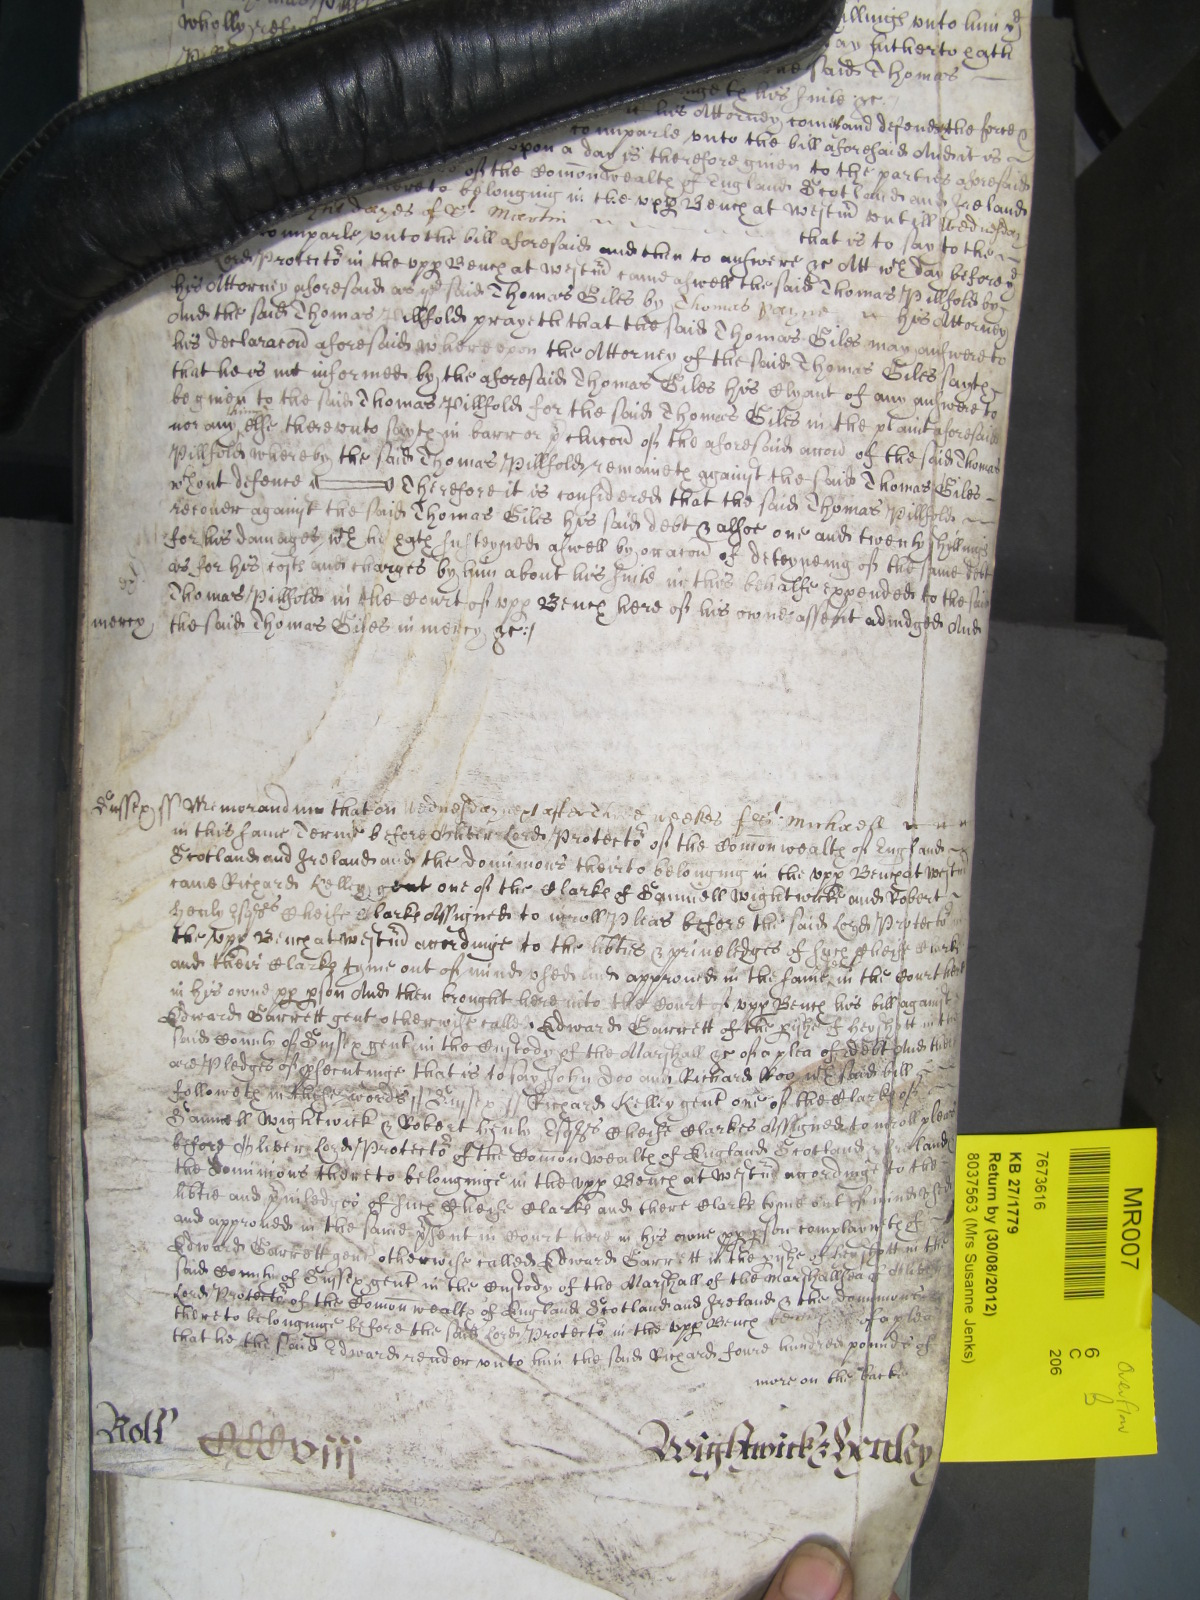 wholly refuse
illings unto him
ay hitherto hath
the said Thomas
his suite &c
his Attorney comes and defends the force &
comparle unto the bill aforesaid And it is
upon a day is therefore given to the parties aforesaid
of the Comonwealth of England Scotland and Ireland
thereto belonging in the upp Bench at Westm untill Wednesday
the dayes of St Martin that is to say to the
comparle unto the bill aforesaid and then to answere &c Att wch day before ye
Lord Protector in the upp Bench at Westm came aswell the said Thomas Pillfold by
his Attorney aforesaid as ye said Thomas Giles by Thomas Payne his Attorney
And the said Thomas Pillfold prayeth that the said Thomas Giles may answere to
his declaracon aforesaid whereupon the Attorney of the said Thomas Giles sayth
that he is not informed by the aforesaid Thomas Giles his Clyant of any answere to
be given to the said Thomas Pillfold for the said Thomas Giles in the plaint aforesaid
nor any thinge else thereunto sayth in barr or pclucon of the aforesaid accon of the said Thomas
Pillfold whereby the said Thomas Pillfold remaineth against the said Thomas Giles
wthout defence Therefore it is considered that the said Thomas Pillfold
recover against the said Thomas Giles his said debt & alsoe one and twenty shillings
for his damages wch he hath susteyned aswell by occacon of deteyneing of the same debt
as for his costs and charges by him about his suite in this behalfe expended to the said
Thomas Pillfold in the Court of upp Bench here of his owne assent adiudged And
mercy the said Thomas Giles in mercy &c:/
Sussex ss Memorandum that on Wednesday next after Three weekes of St Michaell
in this same Terme before Oliver Lord Protector of the Comonwealth of England
Scotland and Ireland and the dominions thereto belonging in the upp Bench at Westm
came Richard Kelley gent one of the Clarks of Samuell Wightwicke and Robert
Henly Esqrs Cheife Clarks Assigned to inroll Pleas before the said Lord Protector
the upp Bench at Westm accordinge to the libties & priviledges of such Cheife Clarks
and their Clarks tyme out of mind used and approved in the same in the Court here
in his owne pp pson And then brought here into the Court of upp Bench his bill against
Edward Garrett gent otherwise called Edward Garrett of the pishe of Heyshott in the
said County of Sussex gent in the Custody of the Marshall &c of a plea of debt And there
are Pledges of psecutinge that is to say John Doo and Richard Roo wch said bill
followeth in these words // Sussex // Richard Kelley gent one of the Clarks of
Samuell Wightwick & Robert Henly Esqrs Cheife Clarkes Assigned to inroll pleas
before Oliver Lord Protector of the Comonwealth of England Scotland & Ireland &
the dominions thereto belonginge in the upp Bench at Westm accordinge to the
libtie and priviledges of such Cheife Clarks and there Clarks tyme out of mind used
and approved in the same psent in Court here in his owne pp pson complayneth of
Edward Garrett gent otherwise called Edward Garrett in the pishe of Heyshott in the
said County of Sussex gent in the Custody of the Marshall of the Marshallsea of Oliver
Lord Protector of the Comonwealth of England Scotland and Ireland & the dominions
thereto belonginge before the said Lord Protector in the upp Bench being of a plea
that he the said Edward render unto him the said Richard foure hundred pounds of
more on the backe
Roll CCCCviij Wightwick & Henley
MR007
7673616
KB 27/1779
Return by (30/08/2012)
8037563 (Mrs Susanne Jenks)
6
C
206
Overflow
B